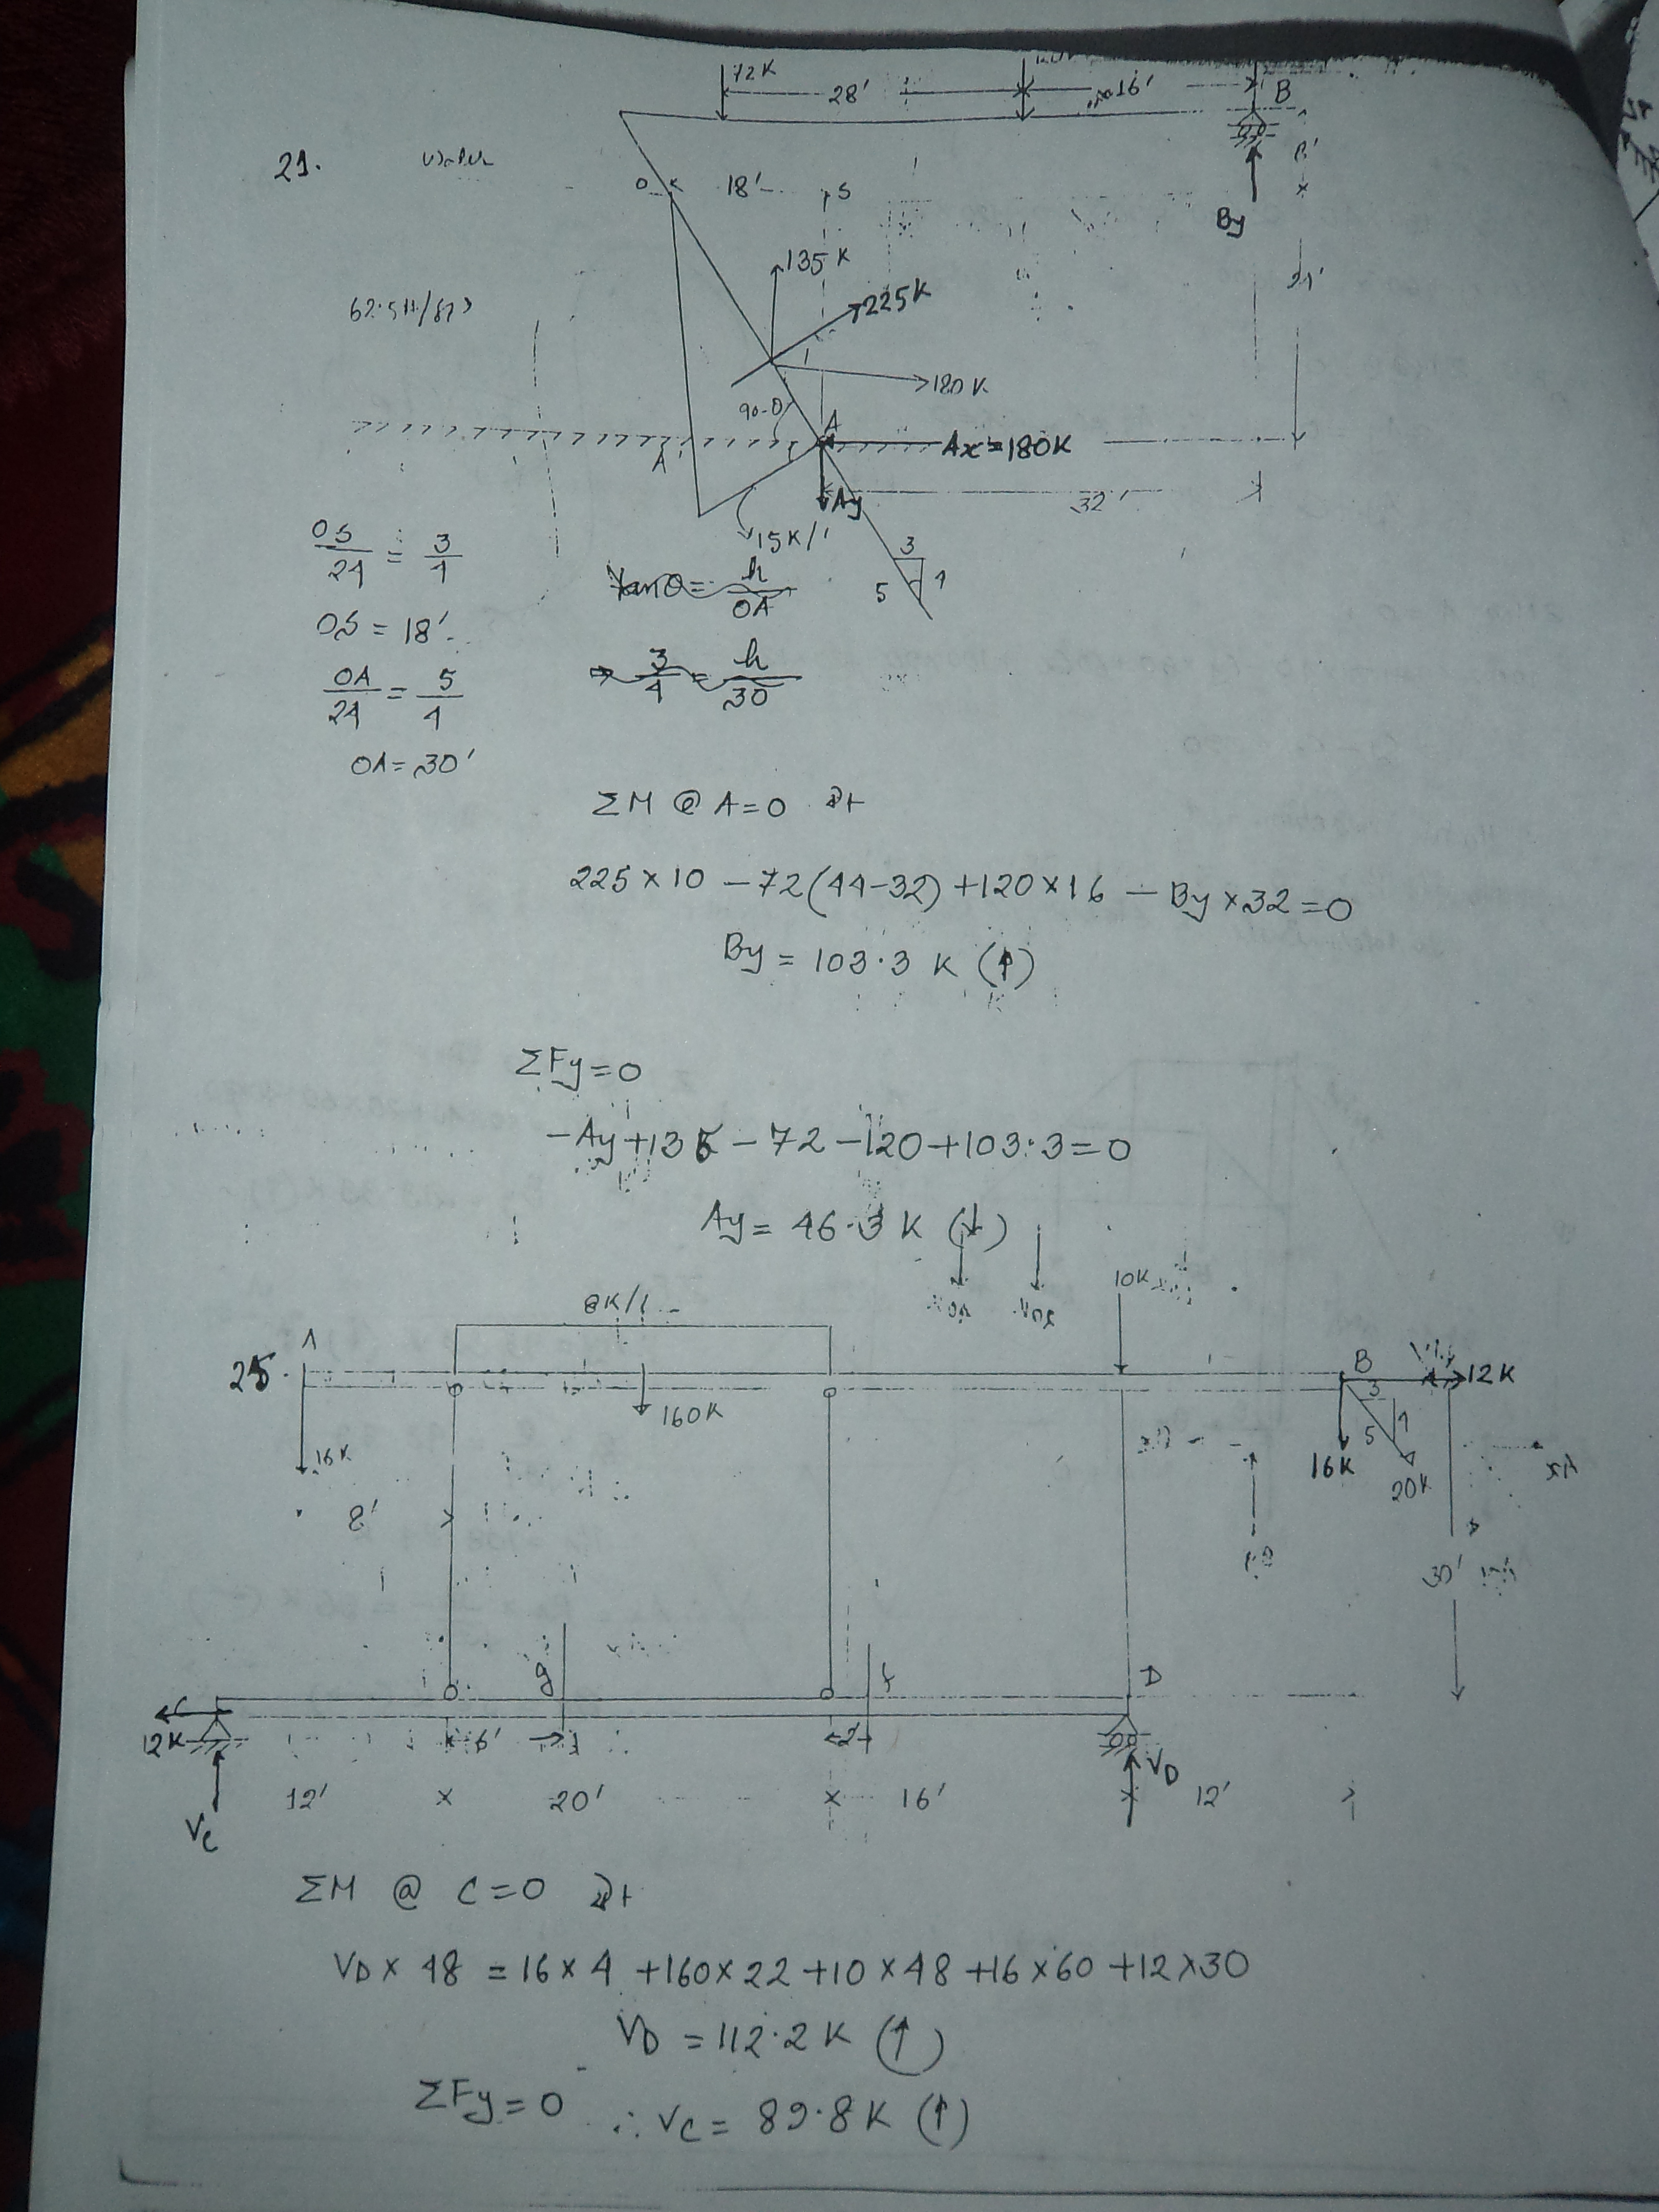 72K
28'
16'
B
21.
O
18'
S
By
135 K
62.5#/ft3
225K
180 K
90-θ
A
Ax=180K
A'
32'
Ay
15K/'
3
5
4
OS/24 = 3/4
tanθ = h/OA
OS = 18'
⇒ 3/4 = h/30
OA/24 = 5/4
OA = 30'
ΣM @ A=0 +
225×10 -72(44-32)+120×16 - By×32=0
By = 103.3 K (↑)
ΣFy=0
-Ay+135-72-120+103.3=0
Ay = 46.3 K (↓)
8K/'
10K
25.
A
B
12K
160K
3
4
5
16K
16K
20K
8'
30'
g
f
D
C
12K
6'
2'
VD
12'
20'
16'
12'
VC
ΣM @ C=0 +
VD×48 = 16×4 +160×22+10×48+16×60+12×30
VD = 112.2K (↑)
ΣFy=0 ∴ VC = 89.8K (↑)